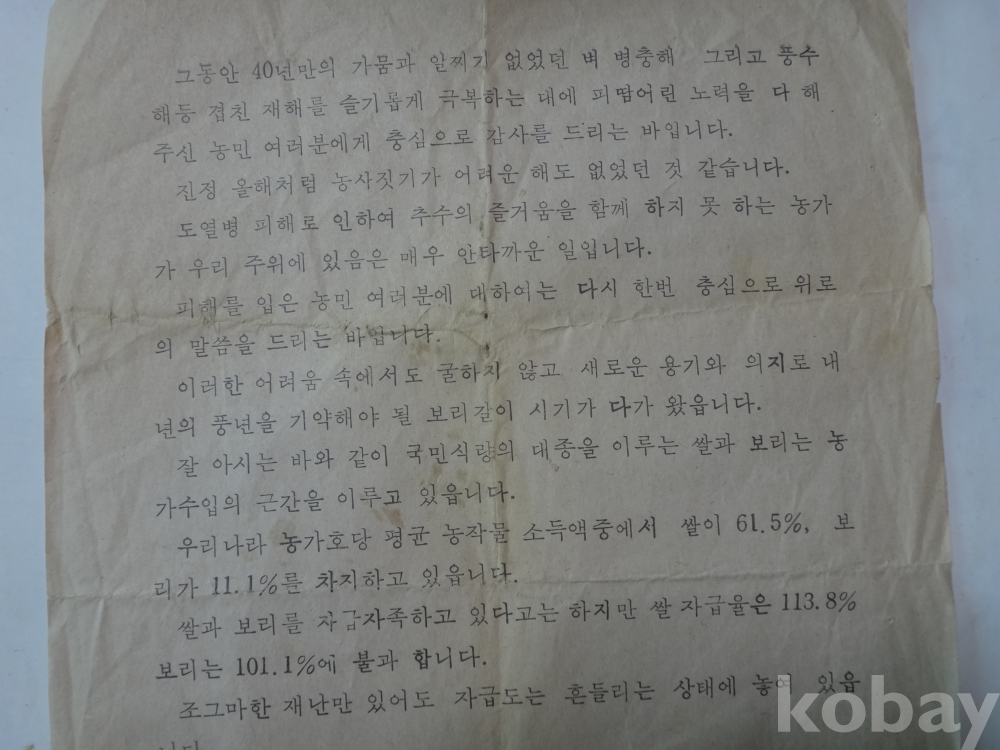 그동안 40년만의 가뭄과 일찌기 없었던 벼 병충해 그리고 풍수
해등 겹친 재해를 슬기롭게 극복하는 대에 피땀어린 노력을 다 해
주신 농민 여러분에게 충심으로 감사를 드리는 바입니다.
진정 올해처럼 농사짓기가 어려운 해도 없었던 것 같습니다.
도열병 피해로 인하여 추수의 즐거움을 함께 하지 못 하는 농가
가 우리 주위에 있음은 매우 안타까운 일입니다.
피해를 입은 농민 여러분에 대하여는 다시 한번 충심으로 위로
의 말씀을 드리는 바입니다.
이러한 어려움 속에서도 굴하지 않고 새로운 용기와 의지로 내
년의 풍년을 기약해야 될 보리갈이 시기가 다가 왔읍니다.
잘 아시는 바와 같이 국민식량의 대종을 이루는 쌀과 보리는 농
가수입의 근간을 이루고 있읍니다.
우리나라 농가호당 평균 농작물 소득액중에서 쌀이 61.5%, 보
리가 11.1%를 차지하고 있읍니다.
쌀과 보리를 자급자족하고 있다고는 하지만 쌀 자급율은 113.8%
보리는 101.1%에 불과 합니다.
조그마한 재난만 있어도 자급도는 흔들리는 상태에 놓여 있읍
니다
kobay